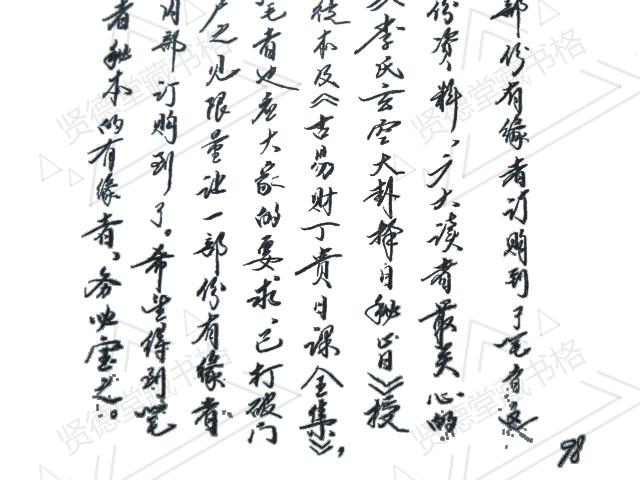 部份有缘者订购到了笔者这
份资料、广大读者最关心的
李氏玄空大卦择日秘旨》授
徒本及《古易财丁贵日课全集》，
笔者也应大家的要求、已打破门
户之见限量让一部份有缘者
内部订购到了。希望得到笔
者秘本的有缘者、务必宝之。
98
贤德堂藏书格
贤德堂藏书格
贤德堂藏书格
贤德堂藏书格